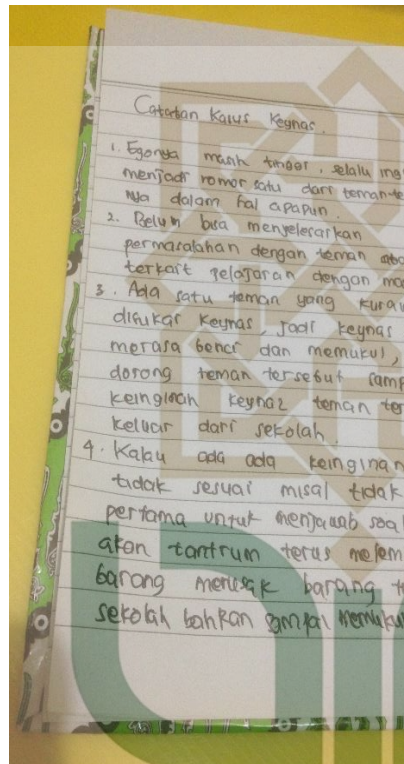 Catatan Kasus Keynas.
1. Egonya masih tinggi, selalu ing
menjadi nomor satu dari teman-te
nya dalam hal apapun.
2. Belum bisa menyelesaikan
permasalahan dengan teman atau
terkait pelajaran dengan ma
3. Ada satu teman yang kura
disukai Keynas, jadi keynas
merasa benci dan memukul,
dorong teman tersebut samp
keinginan keynaz teman ter
keluar dari sekolah.
4. Kalau ada ada keinginan
tidak sesuai misal tidak
pertama untuk menjawab soal
akan tantrum terus melem
barang merusak barang t
sekolah bahkan sampai memukul